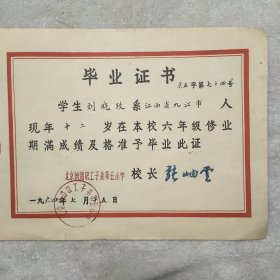 毕业证书
京五字第七〇四号
学生刘晓玫系江西省九江市人
现年十二岁在本校六年级修业
期满成绩及格准予毕业此证
北京铁路职工子弟第五小学
校长 张岫云
一九六〇年七月 五日